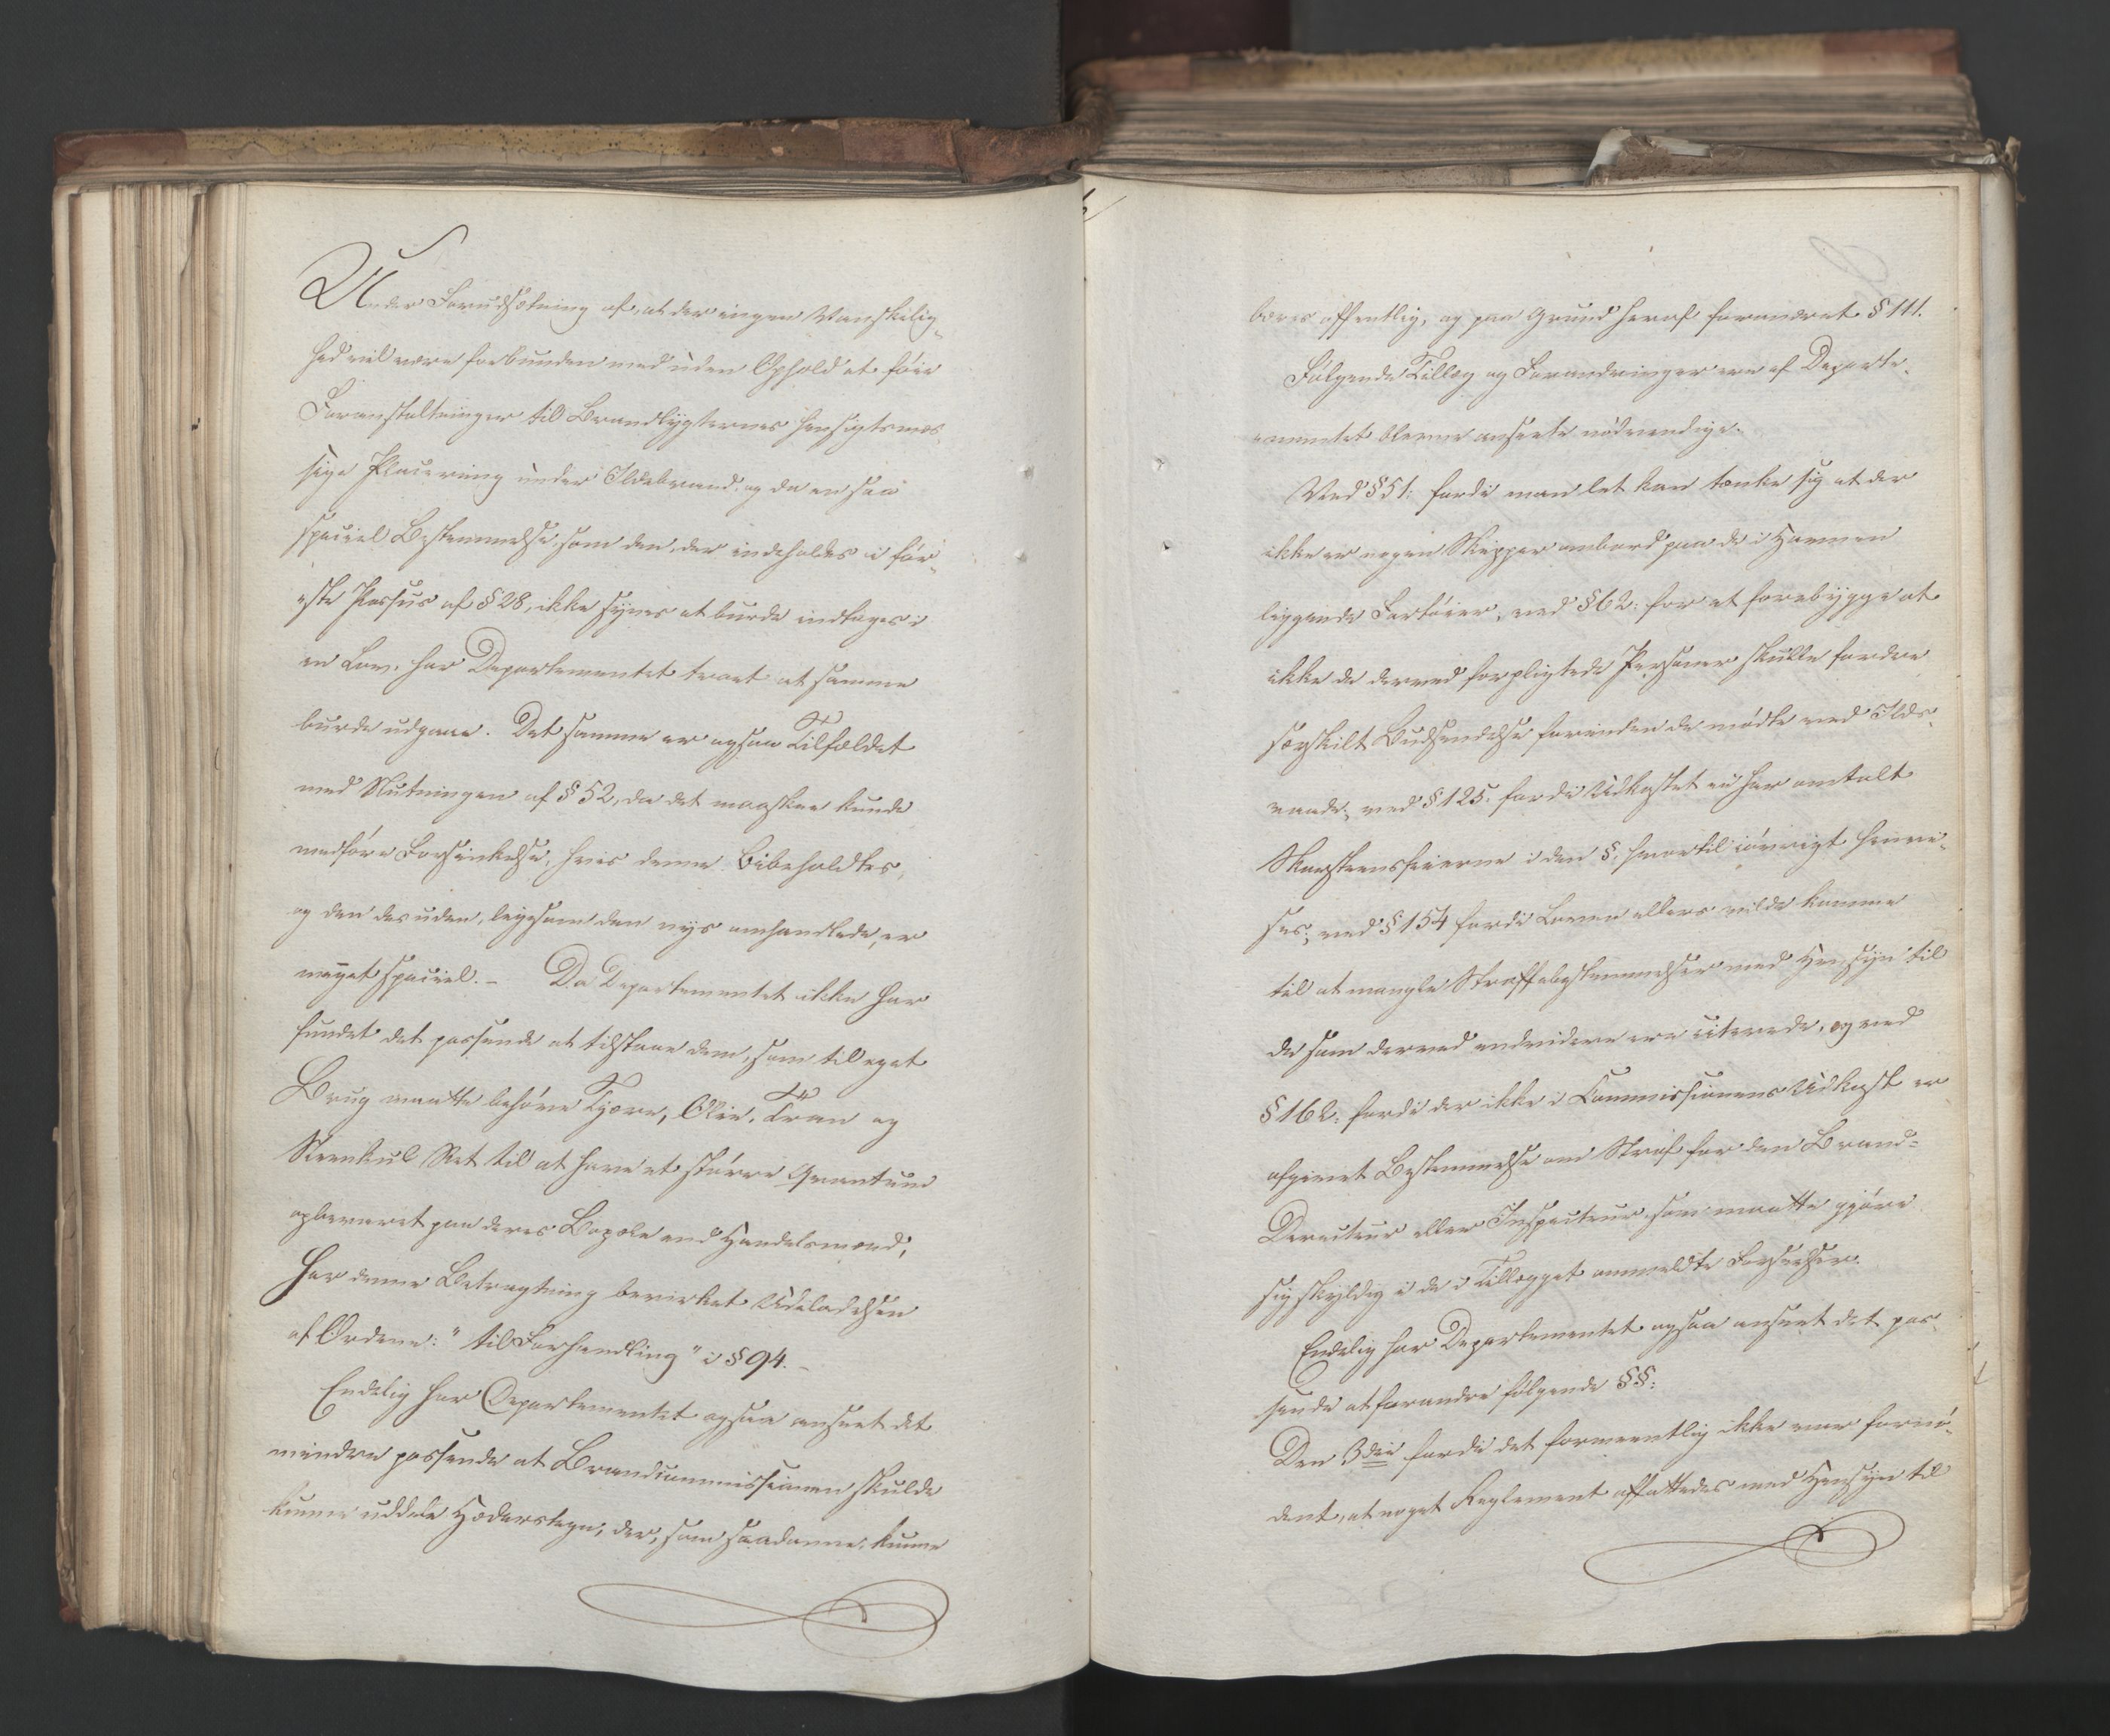 Under Forudsætning af, at der ingen Vanskelig-
hed vil være forbunden med uden Ophold at føie
Foranstaltninger til Brandlygternes hensigtsmæs-
sige Placering under Ildebrand, og da en saa
speciel Bestemmelse, som den, der indeholdes i før-
ste Passus af § 28, ikke synes at burde indtages i
en Lov, har Departementet troet at samme
burde udgaae. Det samme er ogsaa Tilfældet
med Slutningen af § 52, da det maaskee kunde
medføre Forsinkelse, hvis denne bibeholdtes,
og den des uden, ligesom den nys omhandlede, er
meget speciel. - Da Departementet ikke har
fundet det passende at tilstaae dem, som til eget
Brug maatte behøve Tjære, Olie, Tran og
Steenkul Ret til at have et større Qvantum
opbevaret paa deres Bopæle end Handelsmænd,
har denne Betragtning bevirket Udeladelsen
af Ordene: "til Forhandling" i § 94. -
Endelig har Departementet ogsaa anseet det
mindre passende at Brandcommissionen skulde
kunne uddele Hæderstegn, der, som saadanne, kunne
bæres offentlig, og paa Grund heraf forandret § 111.
Følgende Tillæg og Forandringer ere af Departe-
mentet blevne ansete nødvendige.
Ved § 51: fordi man let kan tænke sig at der
ikke er nogen Skipper ombord paa de i Havnen
liggende Fartøier, ved § 62: for at forebygge at
ikke de derved forpligtede Personer skulle fordre
særskilt Budsendelse forinden de mødte ved Ilds-
vaade; ved § 125: fordi Udkastet ei har omtalt
Skorsteensfeierne i den §, hvortil iøvrigt henvi-
ses; ved § 154 fordi Loven ellers vilde komme
til at mangle Straffebestemmelser med Hensyn til
de som derved endvidere ere citerede, og ved
§ 162: fordi der ikke i Commissionens Udkast er
afgivet Bestemmelse om Straf for den Brand-
Directeur eller Inspecteur, som maatte gjøre
sig skyldig i de i Tillægget anmeldte Forseelser.
Endelig har Departementet ogsaa anseet det pas-
sende at forandre følgende §§:
Den 3die fordi det formeentlig ikke var fornø-
dent, at noget Reglement affattedes med Hensyn til